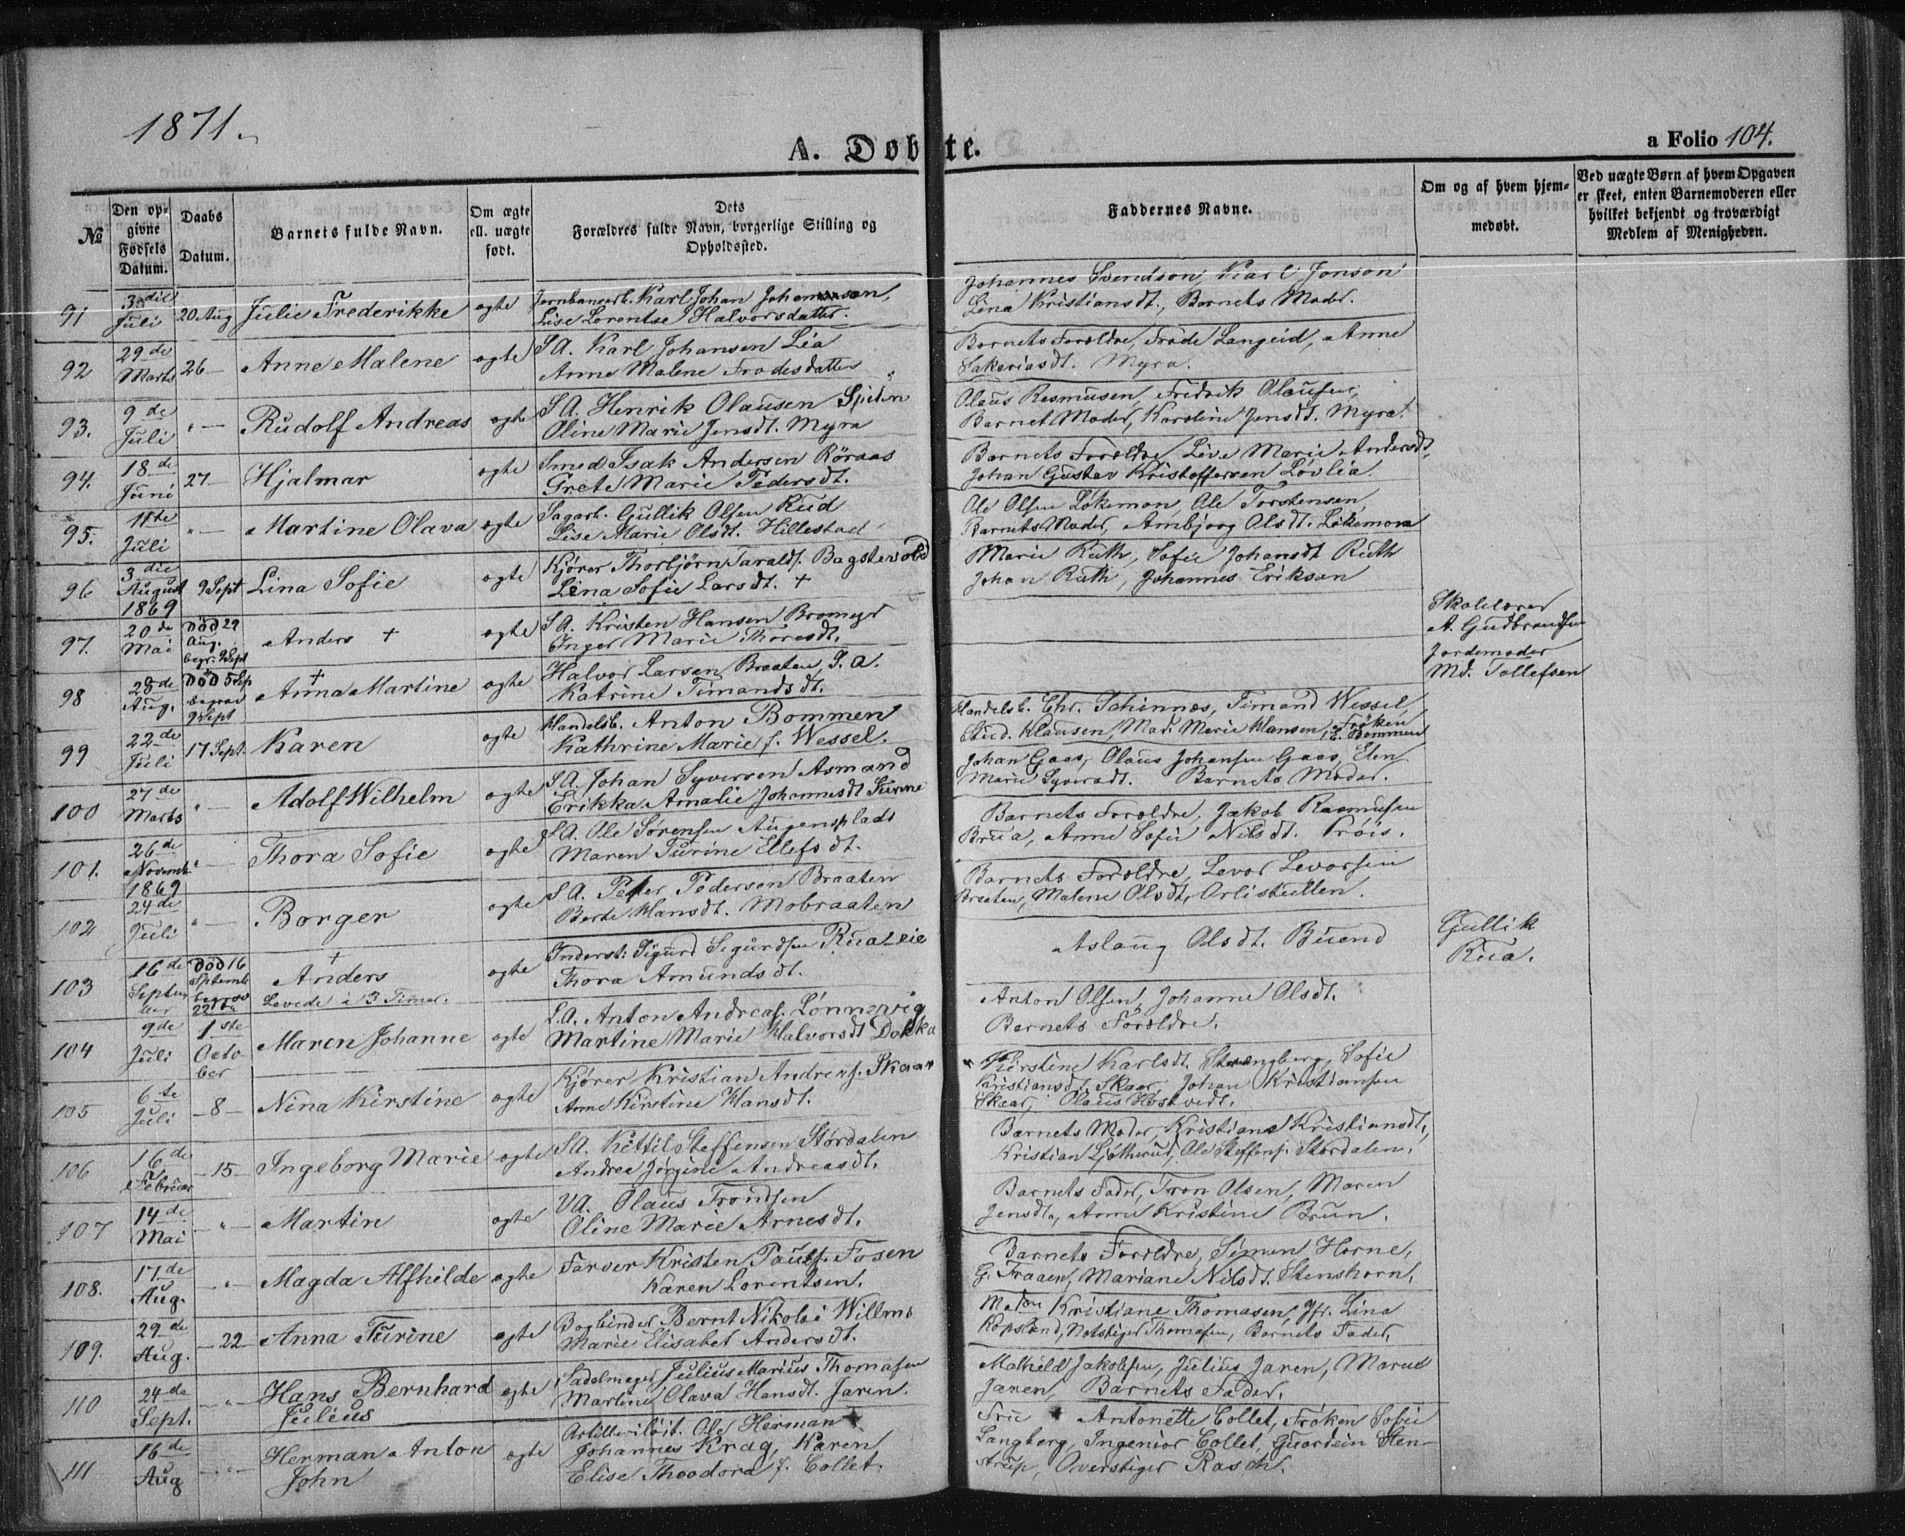 1871.
A. Døbte.
a Folio 104.
№
Den opgivne Fødsels Datum.
Daabs Datum.
Barnets fulde Navn.
Om ægte ell. uægte født.
Dets Forældres fulde Navn, borgerlige Stilling og Opholdssted.
Faddernes Navne.
Om og af hvem hjemmedøbt.
Ved uægte Børn af hvem Opgaven er skeet, enten Barnemoderen eller hvilket bekjendt og troværdigt Medlem af Menigheden.
91 3die Juli 20 Aug Julie Frederikke ægte Karl Johan
Lise Lorentse Halvorsdatter.
Johannes Svendson, Karl Jonson
Lina Kristiansdt., Barnets Moder.
92 29de Marts 26 Anne Malene ægte SA. Karl Johansen Lia
Anne Malene Frodesdatter
Barnets Forældre, Frode Langeid, Anne
Sakariasdt. Myra.
93. 9de Juli " Rudolf Andreas ægte SA. Henrik Olausen
Oline Marie Jensdt. Myra
Olaus Rasmusen, Fredrik Olausen,
Barnet Moder, Karoline Jensdt. Myra.
94. 18de Juni 27 Hjalmar ægte Smed Isak Andersen Röraas
Grete Marie Pedersdt.
Barnets Forældre, Live Marie Andersdt,
Johan Gustav Kristoffersen Løvlia.
95. 11te Juli " Martine Olava ægte Sagarb. Gullik Olsen Rud
Lise Marie Olsdt. Hillestad
Ole Olsen Løkemon, Ole Torstensen,
Barnets Moder, Ambjorg Olsdt. Løkemova
96 3die August 1869 9 Sept Lina Sofie ægte Kjörer Thorbjörn Taralds.
Lina Sofie Larsdt. +
Marie Ruth, Sofie Johansdt Ruth
Johan Ruth, Johannes Erikson
97. 20de Mai Död 29 Aug. begr. 9 Sept Anders + ægte SA. Kristen Hansen Bromyr
Inger Marie Thoresdt.
Skolelærer
A. Gudbrandsen
98 28de Aug. Död 5 Sep begrav 9 Sept + Anna Martine ægte Halvor Larsen Braaten S. A.
Katrine Timandsdt.
Jordemoder
Md. Tollefsen
99 22de Juli 17 Sept. Karen ægte Handelsb. Anton Bommen
Kathrine Marie f. Wessel.
Handelsb. Chr. Schinnes, Timand Wessel,
Stud. Klausen, Mad. Marie Hansen, Frøken E. Bommen
100 27de Marts " Adolf Wilhelm ægte SA. Johan Syversen Asmand
Erikka Amalie Johannesdt
Johan Gaas, Olaus Johansen Gaas, Elen
Marie Syversdt. Barnets Moder.
101. 26de Novembr 1869 " Thora Sofie ægte SA. Ole Sørensen Augensplads
Maren Turine Ellefsdt.
Barnets Forældre, Jakob Rasmusen
Brua, Anne Sofie Nilsdt. Prøis.
102 24de Juli " Borger ægte SA. Peter Pedersen Braaten
Berte Hansdt. Mobraaten
Barnets Forældre, Levor Levorsen
Braaten, Malene Olsdt, Orlistullen.
103 16de September Död 16 September begrav 22de + Anders
Levede i 3 Timer. ægte Inderst: Sigurd Sigurdsen Rua Eie
Thora Amundsdt.
Aslaug Olsdt. Buend
Gullik
Rua.
104 9de Juli 1ste October Maren Johanne ægte S.A. Anton Andreas. Lønnevig
Martine Marie Halvorsdt Dokka
Anton Olsen, Johanne Olsdt.
Barnets Forældre.
105 6te Juli 8 Nina Kirstine ægte Kjörer Kristian Andreas. Skaar
Anne Kirstine Hansdt.
Kirstine Karlsdt. Strengberg, Sofie
Kristiansdt. Skaar, Johan Kristiansen
Skaar, Olaus Hostvedt.
106 16de Februar 15 Ingeborg Marie ægte SA. Kittil Steffensen Stordalen
Andrea Jørgine Andreasdt.
Barnets Moder, Kristiane Kristiansdt,
Kristian Ljøtherud, Ole Steffens. Stordalen.
107 14de Mai " Martin ægte VA. Olaus Trondsen
Oline Marie Arnesdt.
Barnets Fader, Tron Olsen, Maren
Jensdt, Anne Kristine Brun.
108. 17de Aug. " Magda Alfhilde ægte Farver Kristen Pauls. Fosen
Karen Lorentsen.
Barnets Forældre, Simen Horne,
G. Fraaen, Mariane Nilsdt. Stenshorn.
109. 29de Aug. 22 Anna Turine ægte Bogbinder Bernt Nikolai Willms
Marie Elisabet Andersdt.
Madm Kristiane Thomasen, Jfr. Lina
Kopsland, Notstiger Thomasen, Barnets Fader.
110 24de Sept. " Hans Bernhard
Julius ægte Sadelmager Julius Marius Thomasen
Martine Olava Hansdt. Jaren.
Mathild Jakobsen, Julius Jaren, Marie
Jaren, Barnets Fader.
111 16de Aug " Herman Anton
John ægte Ole Herman
Johannes Krag, Karen
Elise Theodora f. Collet.
Fru Antonette Collet, Frøken Sofie
Langberg, Ingeniør Collet, Guardein Stenstrup,
Overstiger Rasch.